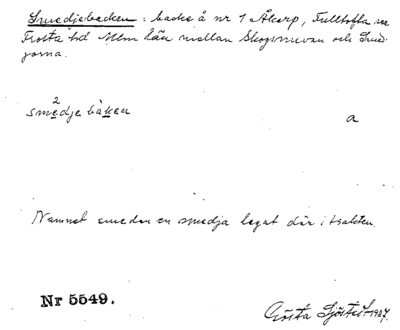 Smedjebacken : backe å nr 1 Åkarp, Fulltofta sn
Frosta hd Mlm län mellan Skogsmuvan och Smed-
jorna.
2
smedje båken
a
Namnet emedan en smedja legat där i trakten.
Nr 5549.
Gösta Sjöstedt 1927.